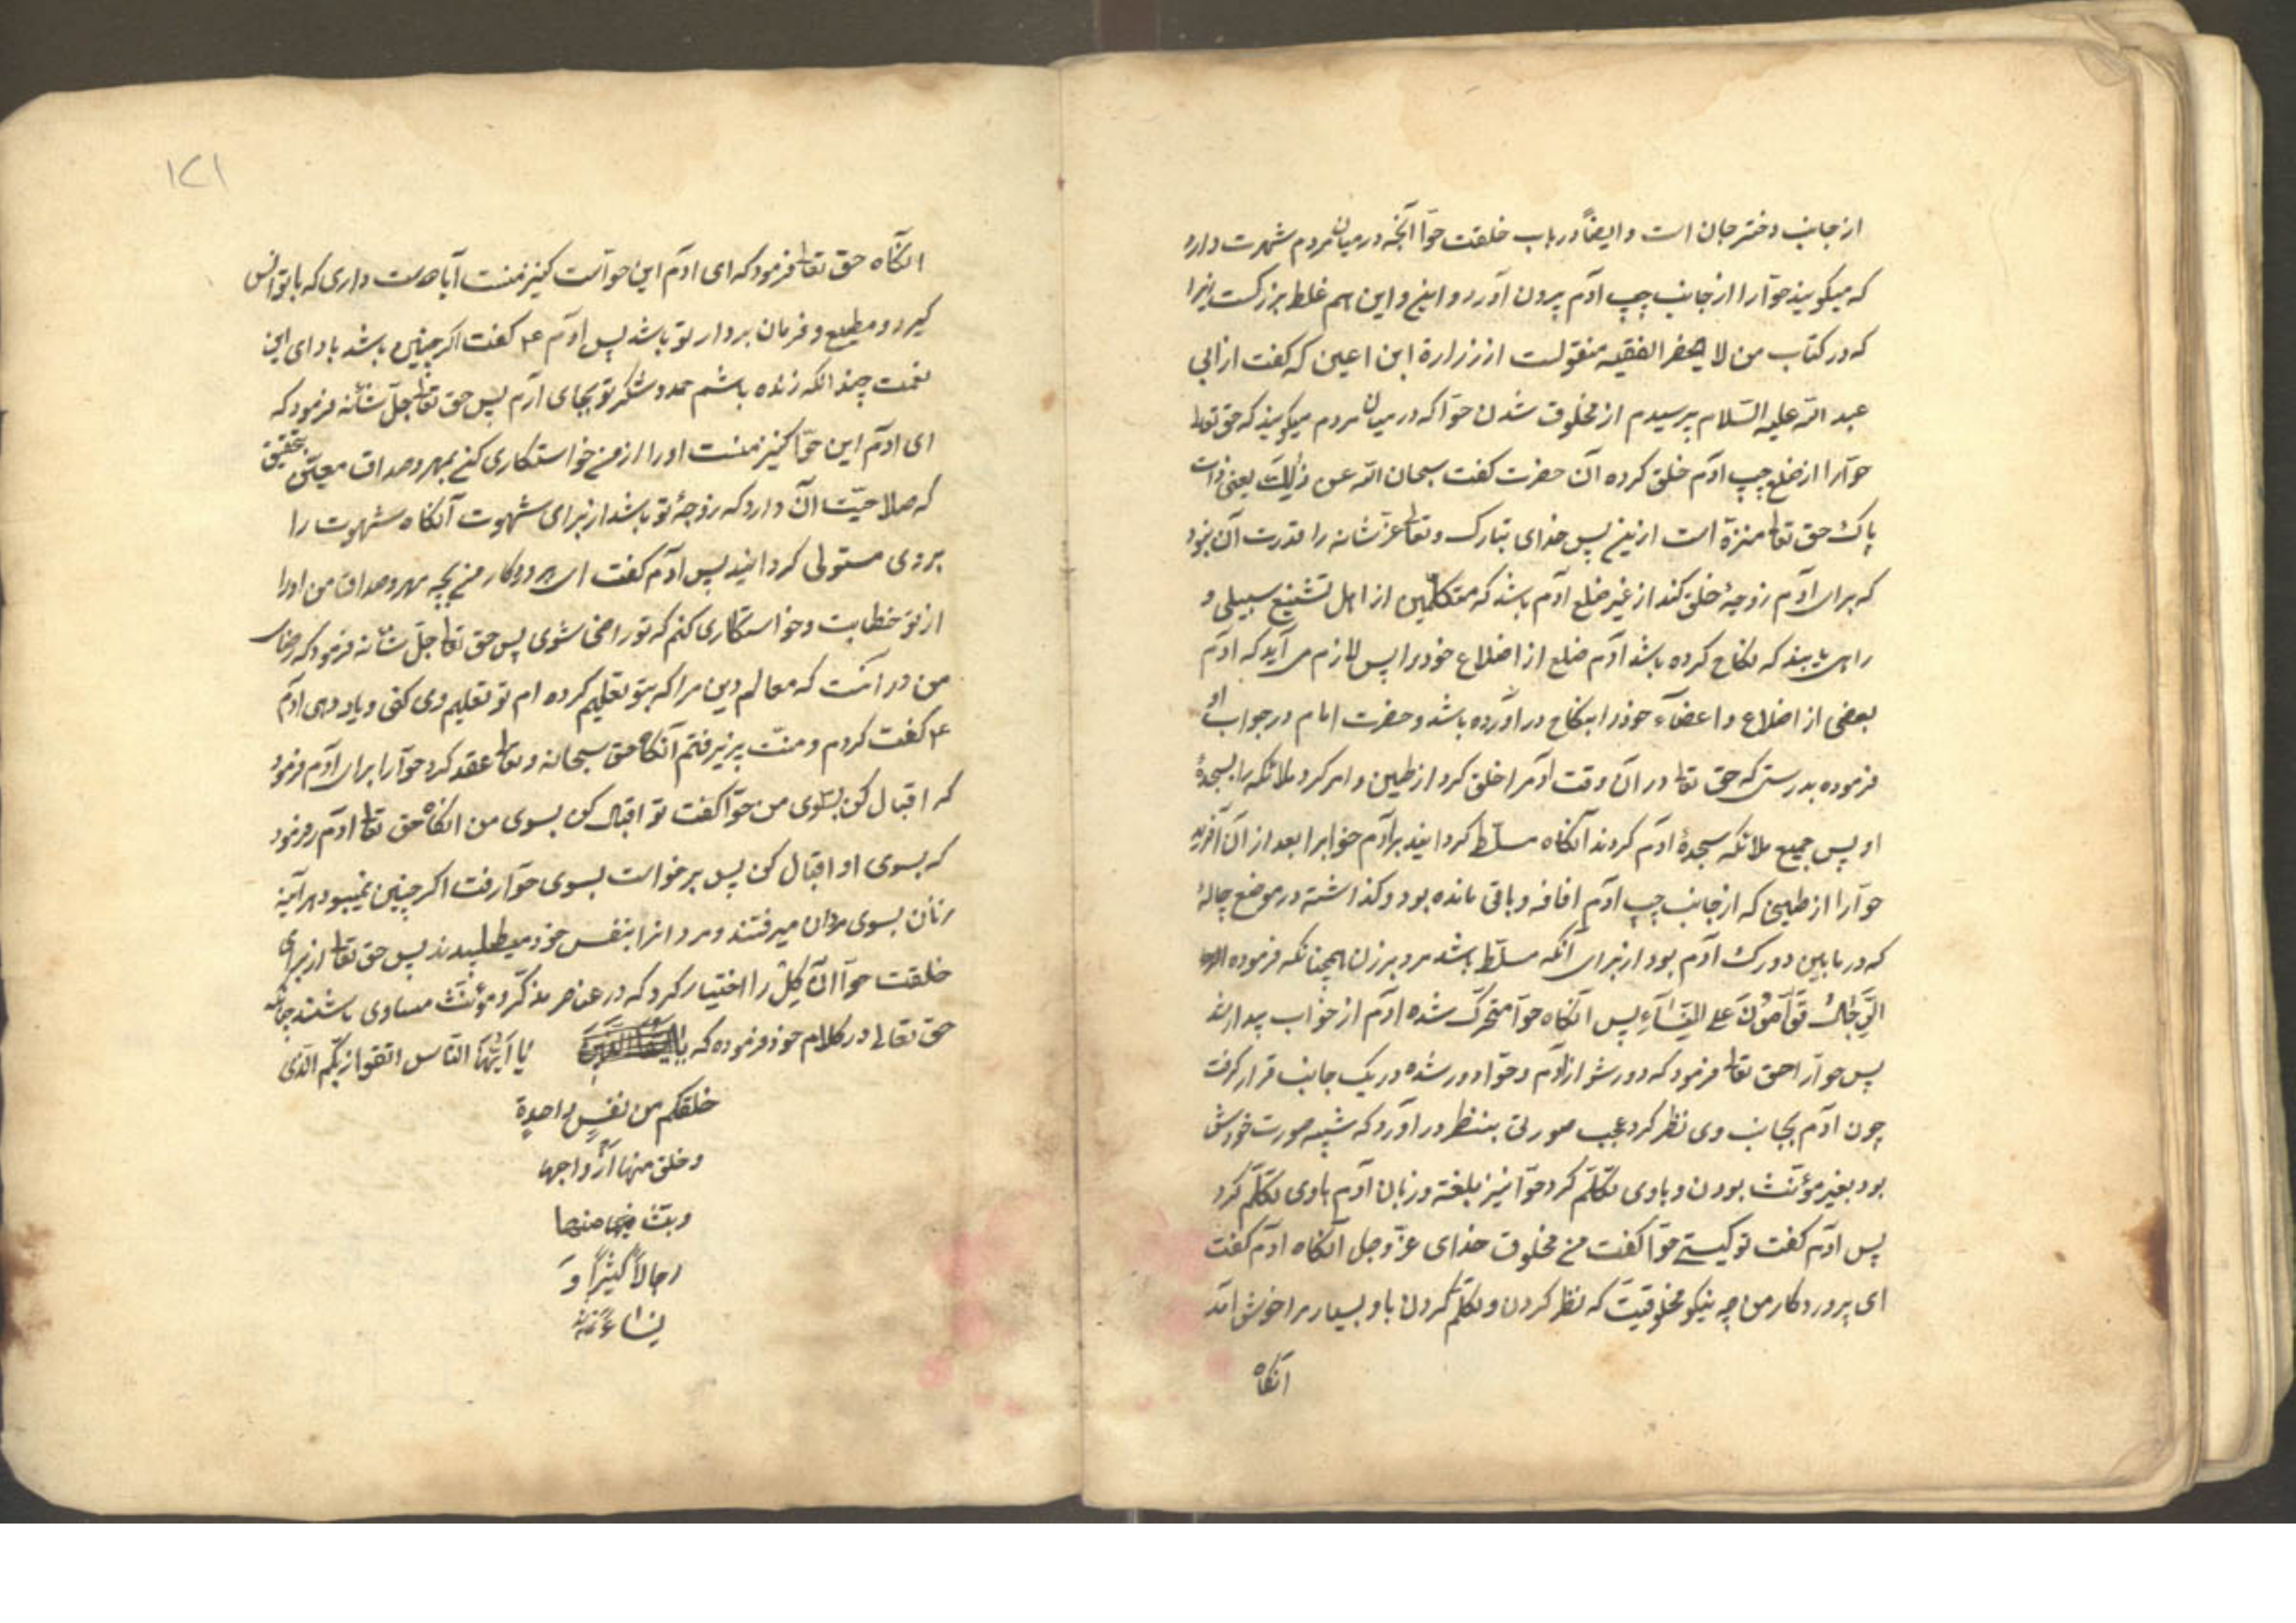 از جانب دختر جان است و ایضاً در باب خلقت حوّا آنچه در میان مردم شهرت دارد
که میگویند حوّا را از جانب چپ آدم بیرون آورد و این هم غلط بزرگست زیرا
که در کتاب من لا یحضر الفقیه منقولست از زرارة ابن اعین که گفت از ابی
عبد الله علیه السّلام پرسیدم از مخلوق شدن حوّا که در میان مردم میگویند که حق تعا
حوّا را از ضلع چپ آدم خلق کرده آن حضرت گفت سبحان الله عن ذٰلِکَ یعنی ذات
پاک حق تعا منزّه است ازین پس خدای تبارک و تعا عزّ شانه را قدرت آن نبود
که برای آدم زوجهٔ خلق کند از غیر ضلع آدم باشد که متکلّمین از اهل تشنیع سبیلی و
راهی یابند که نکاح کرده باشد آدم ضلع از اضلاع خود را پس لازم می آید که آدم
بعضی از اضلاع و اعضآء خود را بنکاح در آورده باشد و حضرت امام در جواب او
فرموده بدرستی که حق تعا در آن وقت آدم را خلق کرد از طین و امر کرد ملائکه را بسجدهٔ
او پس جمیع ملائکه سجدهٔ آدم کردند آنگاه مسلّط گردانید بر آدم خواب را بعد از آن آفرید
حوّا را از طینی که از جانب چپ آدم اضافه و باقی مانده بود و گذاشته در موضع چالهٔ
که در مابین دو رک آدم بود از برای آنکه مسلّط باشد مرد بر زن همچنانکه فرموده
الرِّجَالُ قَوَّامُونَ عَلَی النِّسَآءِ پس آنگاه حوّا متحرّک شده آدم از خواب بیدار شد
پس حوّا را حق تعا فرمود که دور شو از آدم و حوّا دور شده در یک جانب قرار گرفت
چون آدم بجانب وی نظر کرد عجب صورتی بنظر در آورد که شبیه صورت خودش
بود بغیر مؤنّث بودن و باوی تکلّم کرد حوّا نیز بلغة و زبان آدم باوی تکلّم کرد
پس آدم گفت تو کیستی حوّا گفت من مخلوق خدای عزّ و جل آنگاه آدم گفت
ای پروردکار من چه نیکو مخلوقیست که نظر کردن و تکلّم کردن باو بسیار مرا خوش آمد
آنگاه
۱۲۱
آنگاه حق تعا فرمود که ای آدم این حوّاست کنیز منست آیا دوست داری که با تو انس
کیرد و مطیع و فرمان بردار تو باشد پس آدم ع گفت اگر چنین باشد بادای این
نعمت چندانکه زنده باشم حمد و شکر تو بجای آرم پس حق تعا جلّ شانه فرمود که
ای آدم این حوّا کنیز منست او را از من خواستکاری کن بمهر و صداق معیّن بتحقیق
که صلاحیّت آن دارد که زوجهٔ تو باشد از برای شهوت آنگاه شهوت را
بر وی مستولی گردانید پس آدم گفت ای پروردکار من بچه مهر و صداق من او را
از تو خطابت و خواستکاری کنم که تو راضی شوی پس حق تعا جلّ شانه فرمود که رضای
من در آنست که معالم دین مرا که بتو تعلیم کرده ام تو تعلیم وی کنی و یاد دهی آدم
ع گفت کردم و منّت پذیرفتم آنگاه حق سبحانه و تعا عقد کرد حوّا را برای آدم و فرمود
که اقبال کن بسوی من حوّا گفت تو اقبال کن بسوی من آنگاه حق تعا آدم را فرمود
که بسوی او اقبال کن پس برخواست بسوی حوّا رفت اگر چنین نمیبود هر آینه
زنان بسوی مردان میرفتند و مردانرا بنفس خود میطلبیدند پس حق تعا از برای
خلقت حوّا آن گِل را اختیار کرد که در عناصر مذکّر و مؤنّث مساوی باشند چنانکه
حق تعالی در کلام خود فرموده که یا اَیُّهَا النّاس اتّقوا ربّکم الّذی
خلقکم من نفسٍ واحدة
و خلق منها ازواجها
و بثّ منهما
رجالاً کثیراً وَ
نساءً